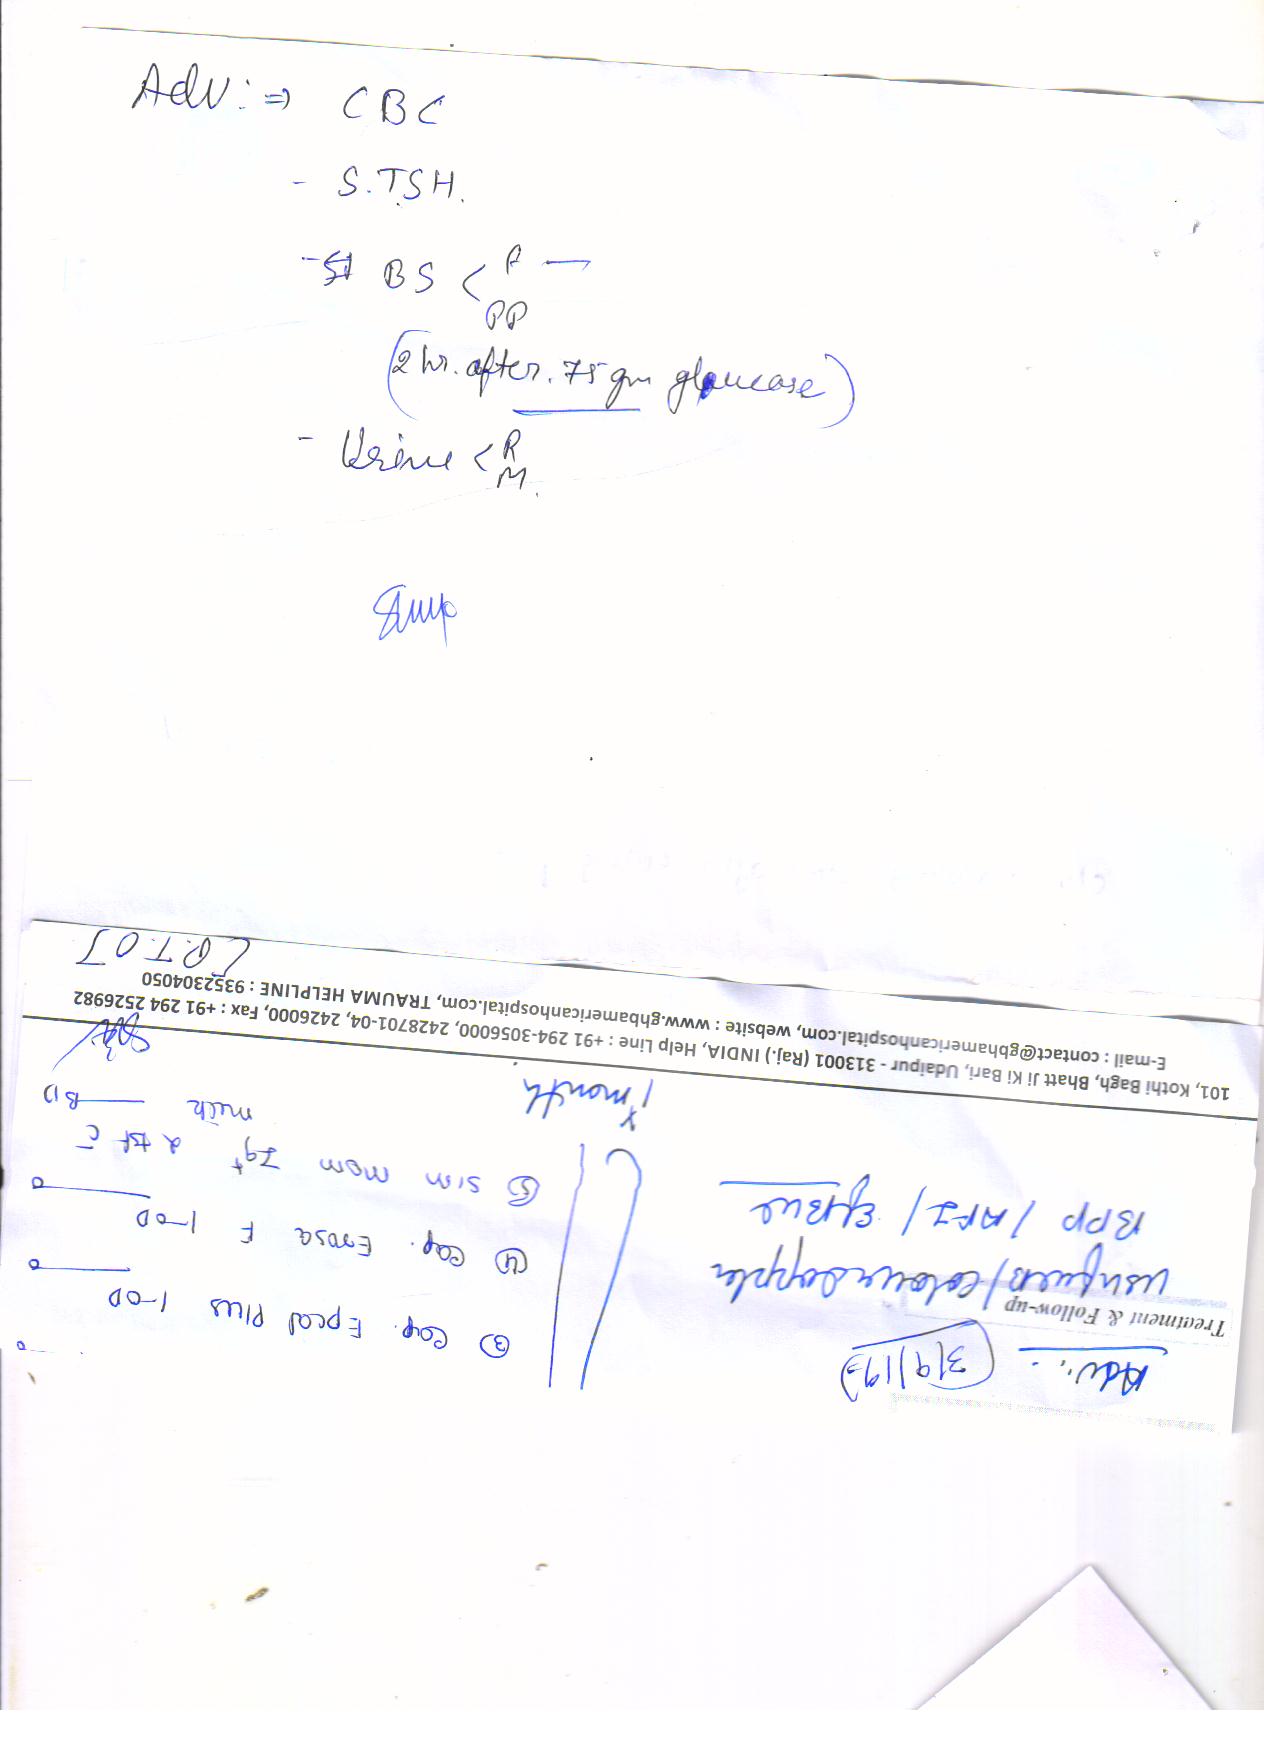 Adv: ⇒ CBC
- S.TSH.
- BS < F —
PP
(2 hr. after. 75 gm glaucase)
- Urine < R
M.
Adv. :- (3/9/19)
Treatment & Follow-up
USG / Colour Doppler
BPP / AFI /
③ Cap. Epcal Plus 1-OD
④ Cap. Enosa F 1-OD
⑤ SIM MOM 2 tsf c̄
milk — BD
x
1 month
101, Kothi Bagh, Bhatt Ji Ki Bari, Udaipur - 313001 (Raj.) INDIA, Help Line : +91 294-3056000, 2428701-04, 2426000, Fax : +91 294 2526982
E-mail : contact@gbhamericanhospital.com, website : www.gbhamericanhospital.com, TRAUMA HELPLINE : 9352304050